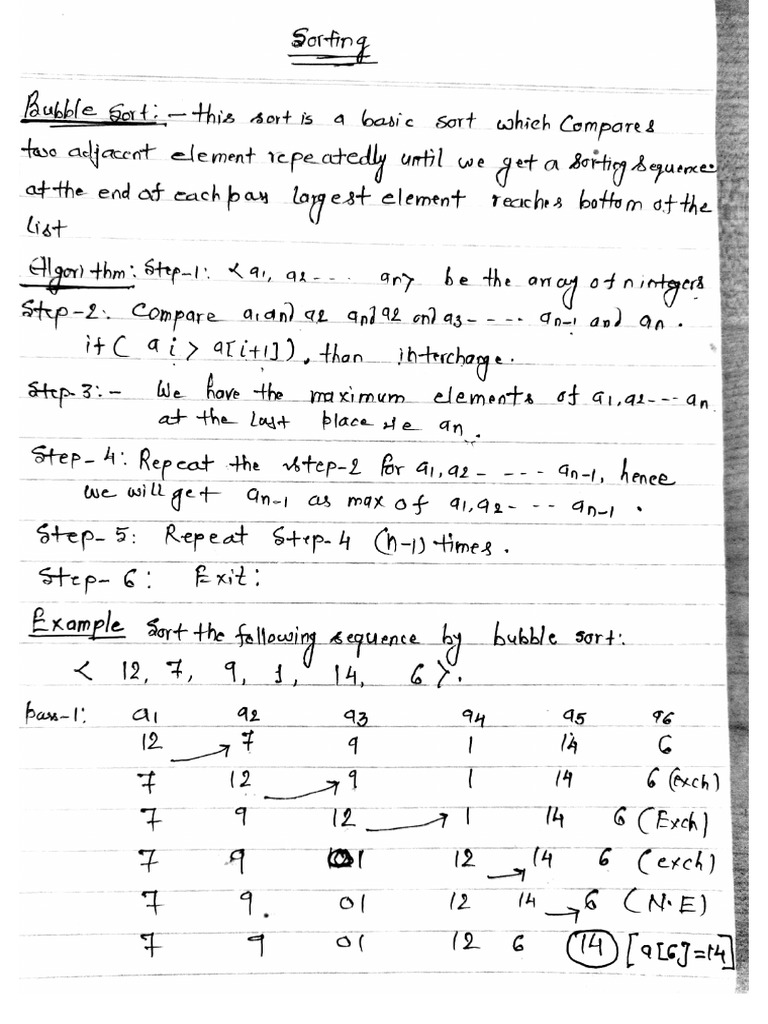 Sorting
Bubble Sort:- this sort is a basic sort which Compares
two adjacent element repeatedly until we get a sorting sequence.
at the end of each pass largest element reaches bottom of the
list
Algorithm: Step-1: <a1, a2---- an> be the array of n intgers
Step-2: Compare a1 and a2 and a2 and a3----- an-1 and an.
if( ai > a[i+1]), than interchage.
Step-3:- We have the maximum elements of a1,a2--- an
at the last place ie an.
Step-4: Repeat the step-2 for a1,a2----- an-1, hence
we will get an-1 as max of a1,a2---- an-1.
Step-5: Repeat Step-4 (n-1) times.
Step-6: Exit:
Example Sort the following sequence by bubble sort:
< 12, 7, 9, 1, 14, 6>.
pass-1: a1 a2 a3 a4 a5 a6
12 → 7 9 1 14 6
7 12 → 9 1 14 6 (exch)
7 9 12 → 1 14 6 (Exch)
7 9 01 12 → 14 6 (exch)
7 9. 01 12 14 → 6 (N.E)
7 9 01 12 6 14 [a[6]=14]